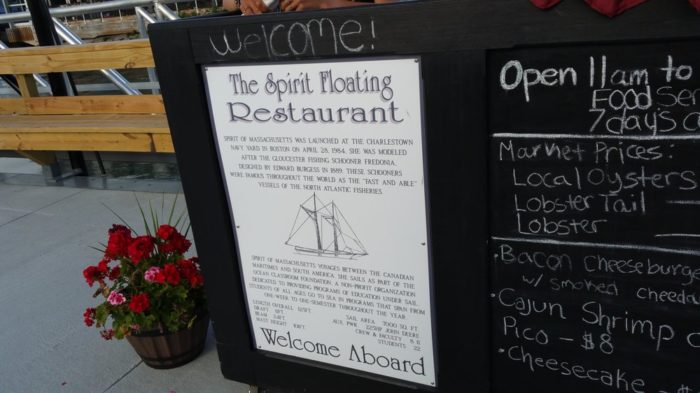 Welcome!
The Spirit Floating
Restaurant
SPIRIT OF MASSACHUSETTS WAS LAUNCHED AT THE CHARLESTOWN
NAVY YARD IN BOSTON ON APRIL 28, 1984. SHE WAS MODELED
AFTER THE GLOUCESTER FISHING SCHOONER FREDONIA,
DESIGNED BY EDWARD BURGESS IN 1889. THESE SCHOONERS
WERE FAMOUS THROUGHOUT THE WORLD AS THE "FAST AND ABLE"
VESSELS OF THE NORTH ATLANTIC FISHERIES
SPIRIT OF MASSACHUSETTS VOYAGES BETWEEN THE CANADIAN
MARITIMES AND SOUTH AMERICA. SHE SAILS AS PART OF THE
OCEAN CLASSROOM FOUNDATION, A NON-PROFIT ORGANIZATION
DEDICATED TO PROVIDING PROGRAMS OF EDUCATION UNDER SAIL.
STUDENTS OF ALL AGES GO TO SEA IN PROGRAMS THAT SPAN FROM
ONE-WEEK TO ONE-SEMESTER THROUGHOUT THE YEAR
LENGTH OVERALL 125FT. SAIL AREA 7000 SQ. FT.
DRAFT AUX. PWR 225HP JOHN DEERE
BEAM CREW & FACULTY
MAST HEIGHT STUDENTS 22
Welcome Aboard
Open 11am to
Food
7 days a
Market Prices:
Local Oysters
Lobster Tail
Lobster
Bacon Cheeseburg
w/ smoked chedd
Cajun Shrimp
Pico - $8
Cheesecake -